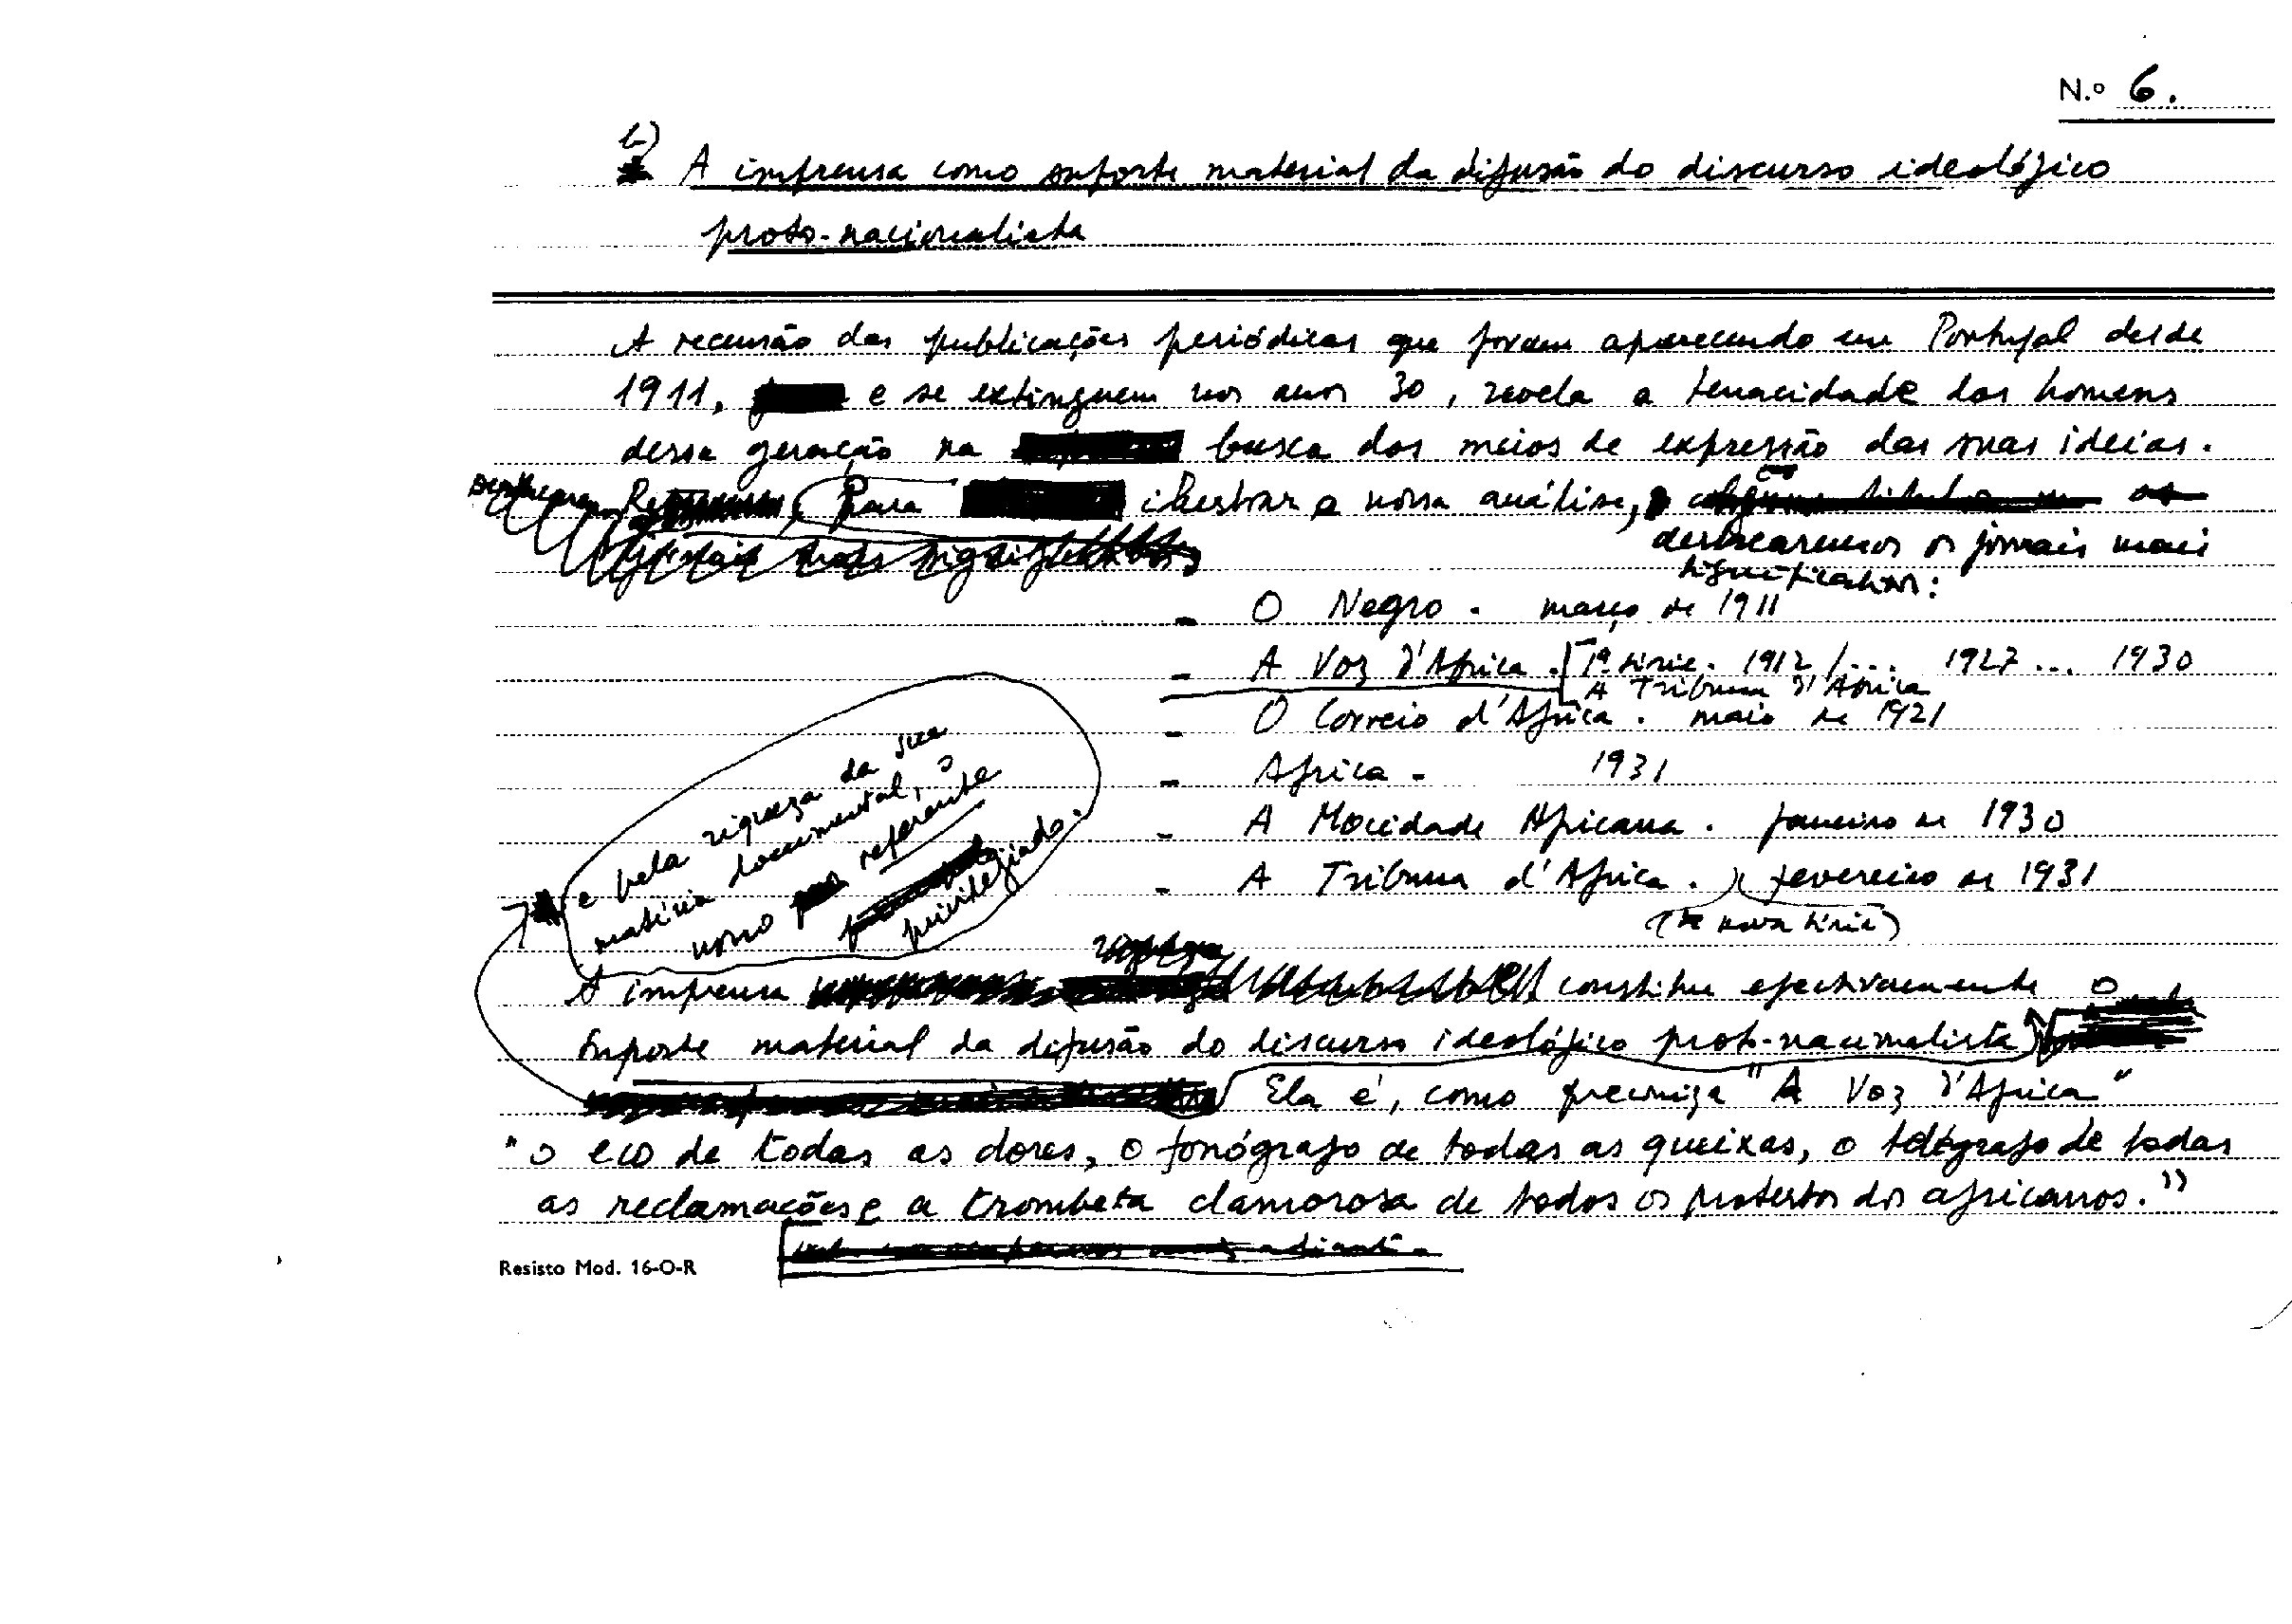 N.º 6.
b)
A imprensa como suporte material da difusão do discurso ideológico
proto-nacionalista
A recensão das publicações periódicas que foram aparecendo em Portugal desde
1911, e se extinguem nos anos 30, revela a tenacidade dos homens
dessa geração na busca dos meios de expressão das suas ideias.
Para ilustrar a nossa análise,
destacaremos os jornais mais
significativos:
- O Negro. março de 1911
- A Voz d'Africa. [1ª série. 1912 /... 1927... 1930
A Tribuna d'Africa
- O Correio d'Africa. maio de 1921
- Africa - 1931
- A Mocidade Africana. Janeiro de 1930
- A Tribuna d'Africa. fevereiro de 1931
(nova série)
e pela riqueza da sua
matéria documental, o
nosso referente
privilegiado.
A imprensa constitui efectivamente o
suporte material da difusão do discurso ideológico proto-nacionalista
Ela é, como preconiza "A Voz d'Africa"
"o eco de todas as dores, o fonógrafo de todas as queixas, o telégrafo de todas
as reclamações e a trombeta clamorosa de todos os protestos dos africanos."
Resisto Mod. 16-O-R